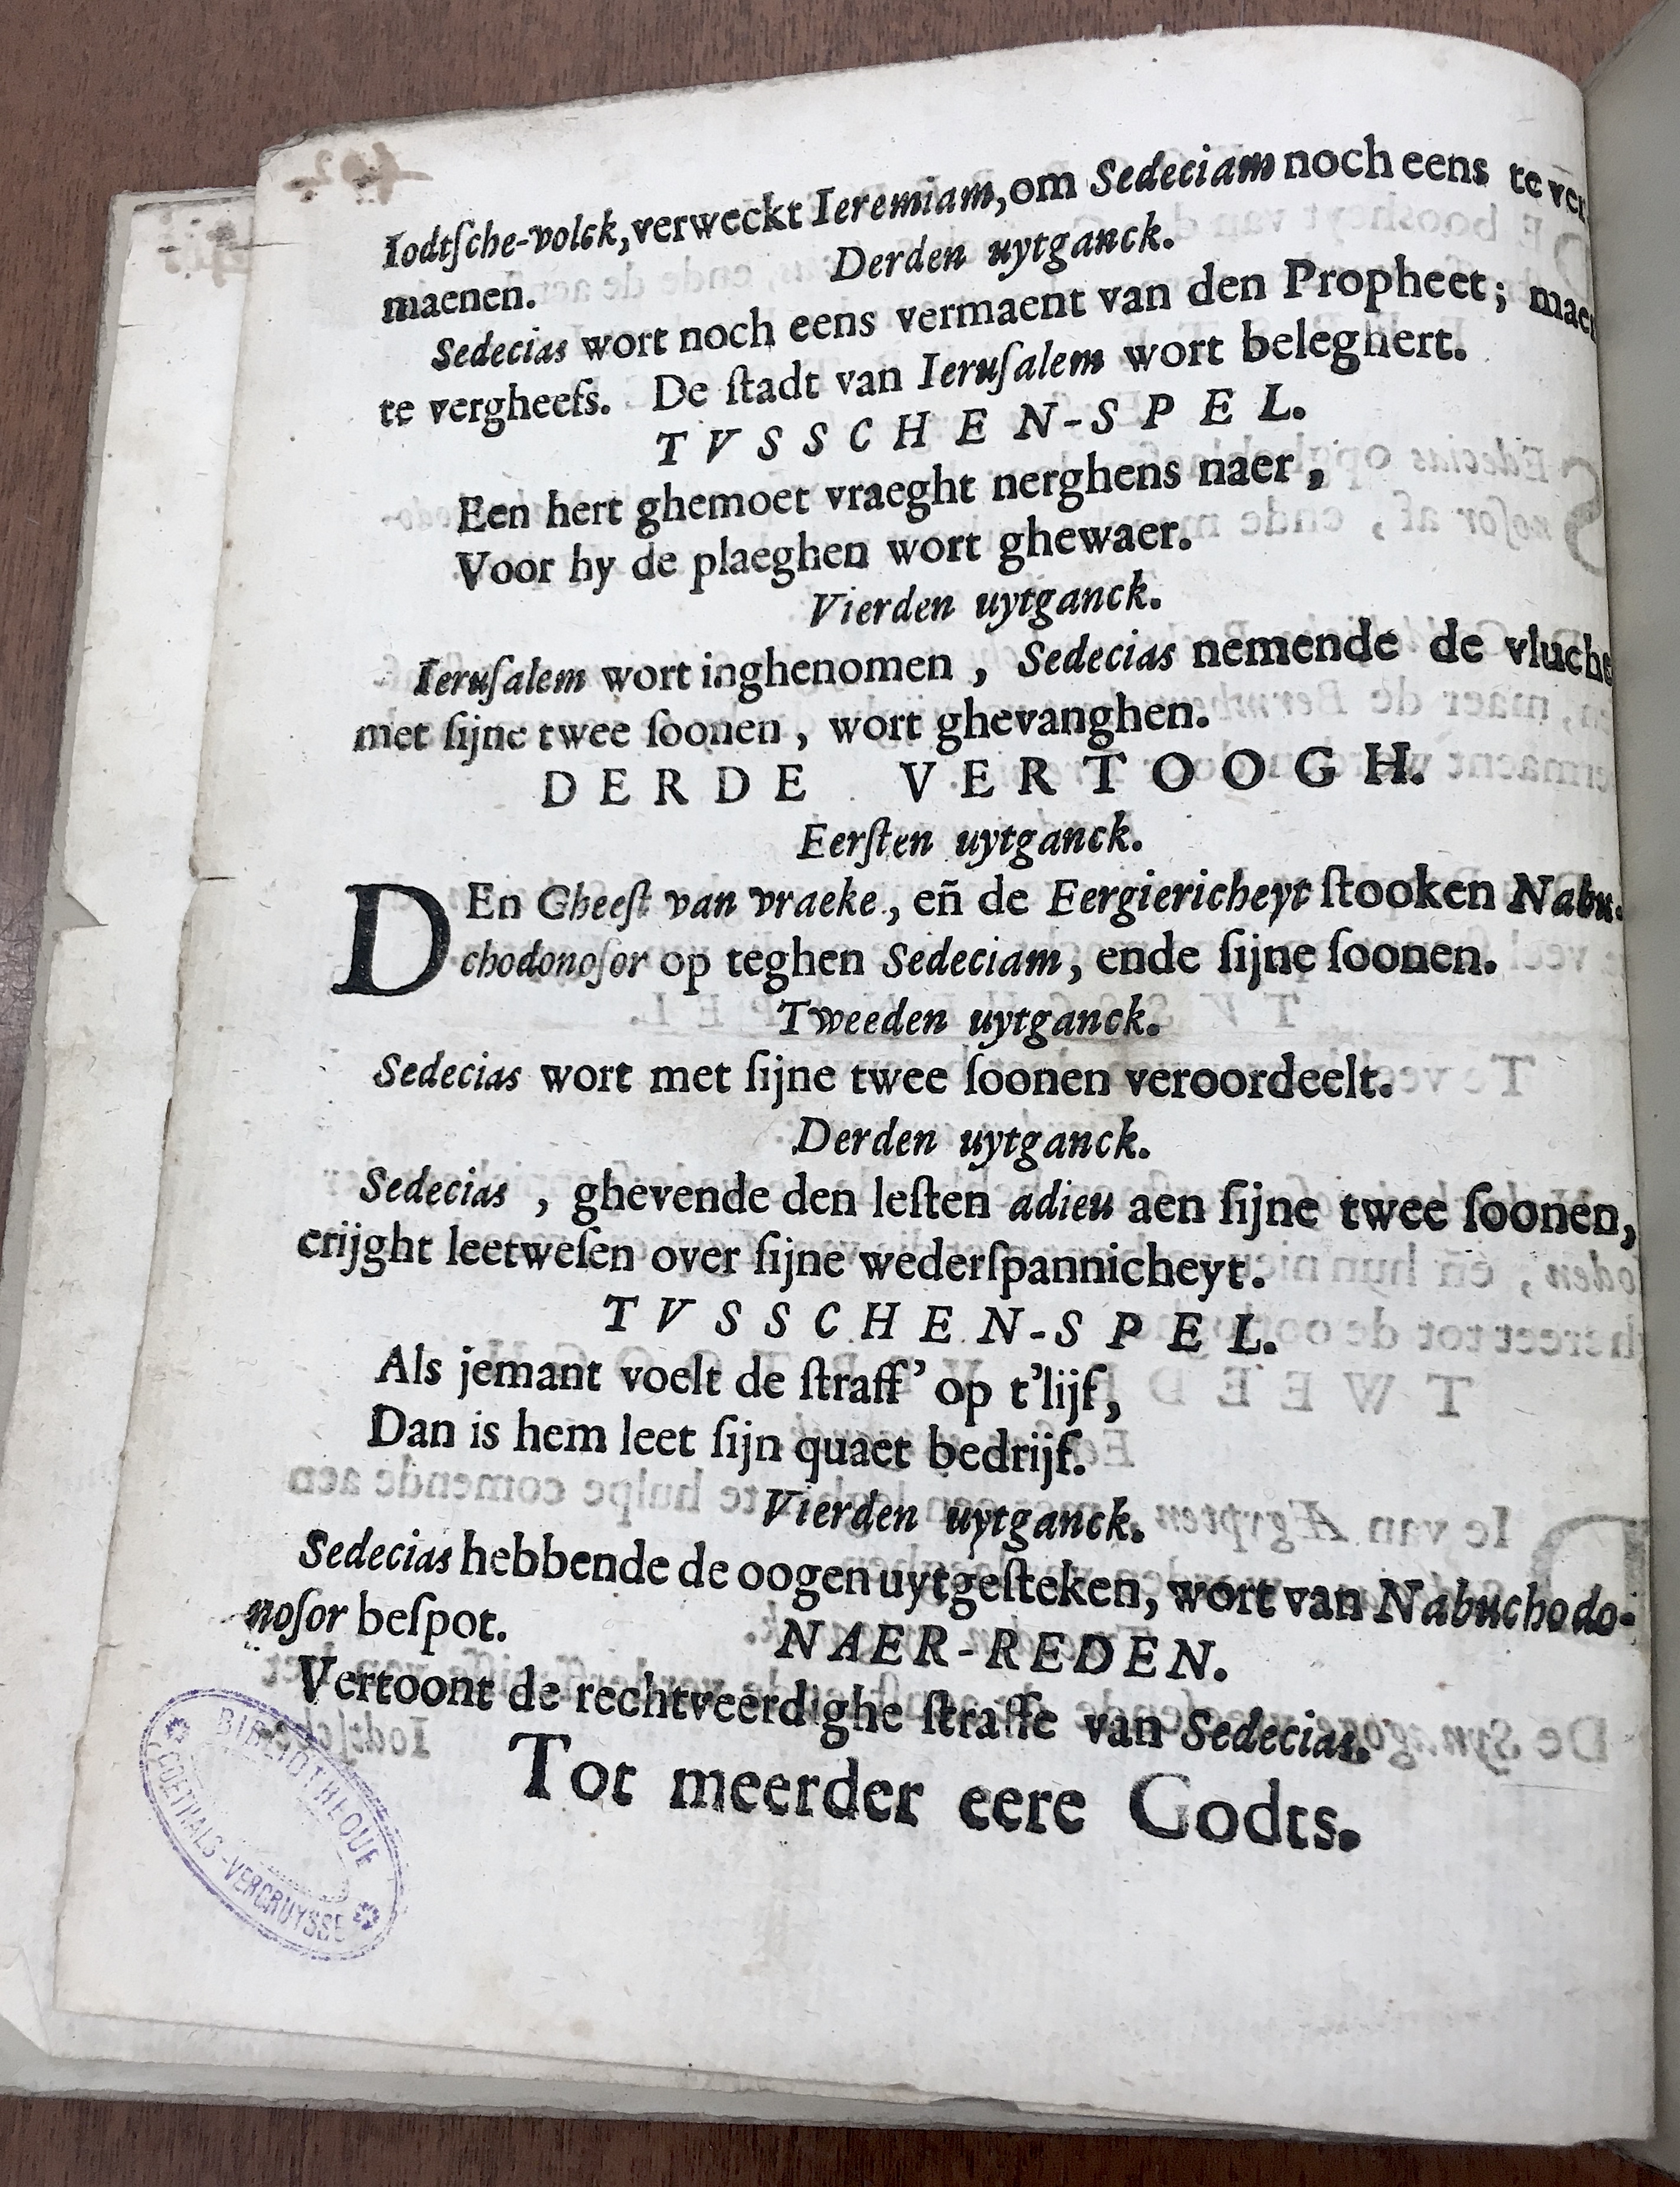 Iodtſche-volck, verweckt Ieremiam, om Sedeciam noch eens te ver
maenen.
Derden uytganck.
Sedecias wort noch eens vermaent van den Propheet; maer
te vergheefs. De ſtadt van Ieruſalem wort beleghert.
TVSSCHEN-SPEL.
Een hert ghemoet vraeght nerghens naer,
Voor hy de plaeghen wort ghewaer.
Vierden uytganck.
Ieruſalem wort inghenomen, Sedecias nemende de vlucht
met ſijne twee ſoonen, wort ghevanghen.
DERDE VERTOOGH.
Eerſten uytganck.
DEn Gheeſt van vraeke, eñ de Eergiericheyt ſtooken Nabu-
chodonoſor op teghen Sedeciam, ende ſijne ſoonen.
Tweeden uytganck.
Sedecias wort met ſijne twee ſoonen veroordeelt.
Derden uytganck.
Sedecias, ghevende den leſten adieu aen ſijne twee ſoonen,
crijght leetweſen over ſijne wederſpannicheyt.
TVSSCHEN-SPEL.
Als jemant voelt de ſtraff' op t'lijf,
Dan is hem leet ſijn quaet bedrijf.
Vierden uytganck.
Sedecias hebbende de oogen uytgeſteken, wort van Nabuchodo-
noſor beſpot.
NAER-REDEN.
Vertoont de rechtveerdighe ſtraffe van Sedecias.
Tot meerder eere Godts.
BIBLIOTHEQUE
GOETHALS-VERCRUYSSE